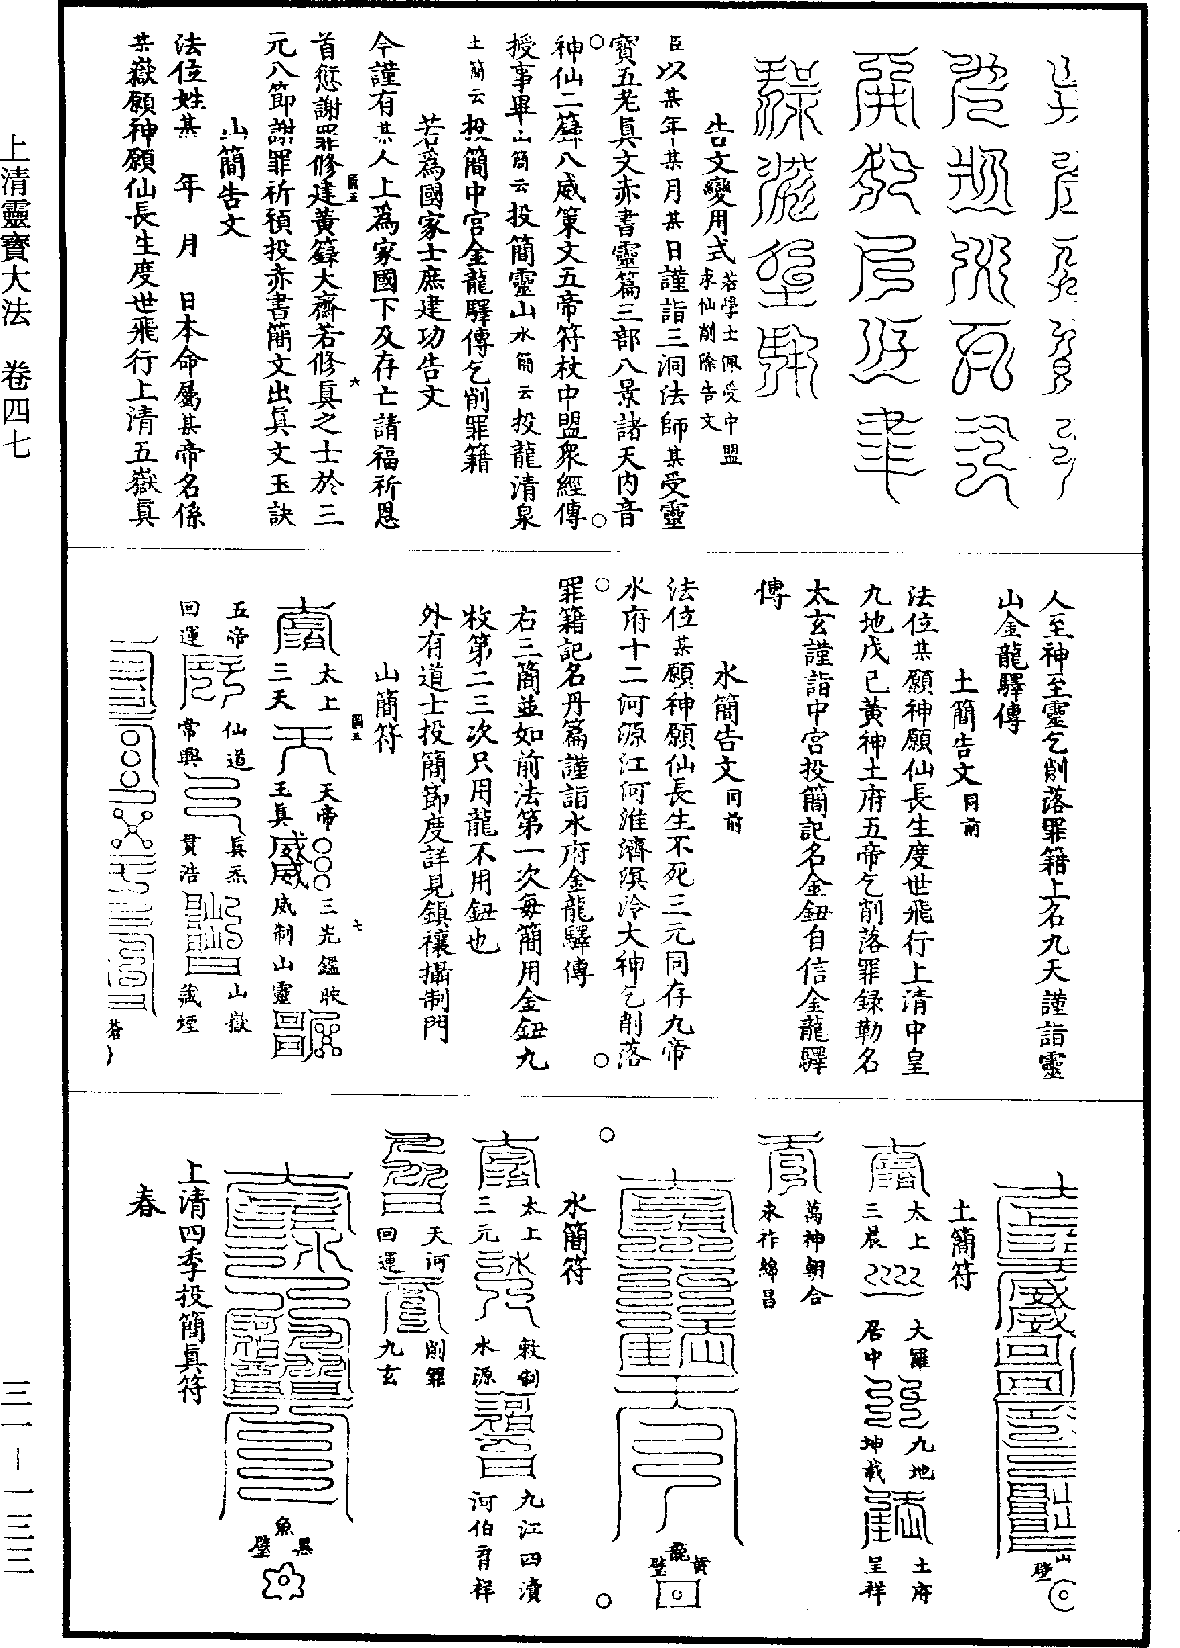 上清靈寶大法　卷四七
三一－一三三
告文變用式若學士佩受中盟
求仙削除告文
臣以某年某月某日謹詣三洞法師某受靈
寶五老眞文赤書靈篇三部八景諸天内音
神仙二籙八威策文五帝符杖中盟衆經傳
授事畢山簡云投簡靈山水簡云投龍清泉
土簡云投簡中宮金龍驛傳乞削罪籍
若爲國家士庶建功告文
今謹有某人上爲家國下及存亡請福祈恩
首愆謝罪修建黄籙大齋若修眞之士於三
元八節謝罪祈禱投赤書簡文出眞文玉訣
山簡告文
法位姓某　年　月　日本命屬某帝名係
某嶽願神願仙長生度世飛行上清五嶽眞
人至神至靈乞削落罪籍上名九天謹詣靈
山金龍驛傳
土簡告文同前
法位某願神願仙長生度世飛行上清中皇
九地戊己黄神土府五帝乞削落罪録勒名
太玄謹詣中宮投簡記名金鈕自信金龍驛
傳
水簡告文同前
法位某願神願仙長生不死三元同存九帝
水府十二河源江河淮濟溟泠大神乞削落
罪籍記名丹篇謹詣水府金龍驛傳
右三簡並如前法第一次每簡用金鈕九
枚第二三次只用龍不用鈕也
外有道士投簡節度詳見鎮禳攝制門
山簡符
太上
三天
天帝
玉眞
三光鑑映
威制山靈
五帝
回運
仙道
常興
眞炁
貫浩
山嶽
藏煙
山
璧
土簡符
太上
三晨
大羅
居中
九地
坤載
土府
呈祥
萬神朝合
永祚綿昌
黄
龍
璧
水簡符
太上
三元
敕制
水源
九江四瀆
河伯育祥
天河
回運
削罪
九玄
黑
魚
璧
上清四季投簡眞符
春